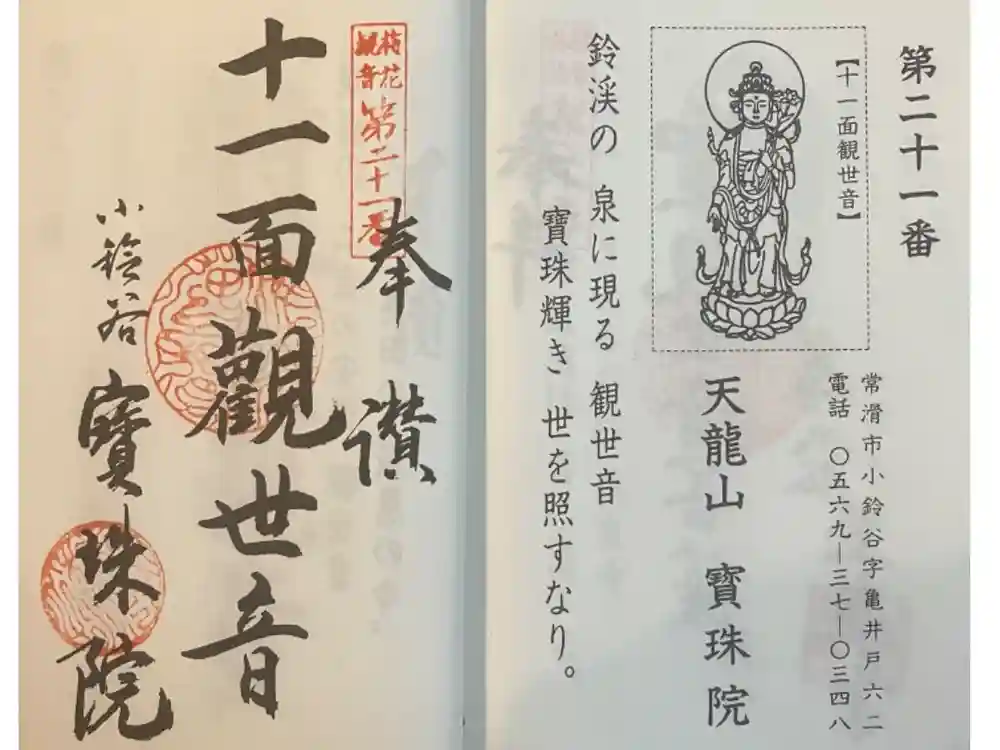 第二十一番
【十一面観世音】
常滑市小鈴谷字亀井戸六二
電話 〇五六九―三七―〇三四八
天龍山 寶珠院
鈴渓の 泉に現る 観世音
寶珠輝き 世を照すなり。
梅花
観音
第二十一番
奉讃
十一面觀世音
小鈴谷 寶珠院